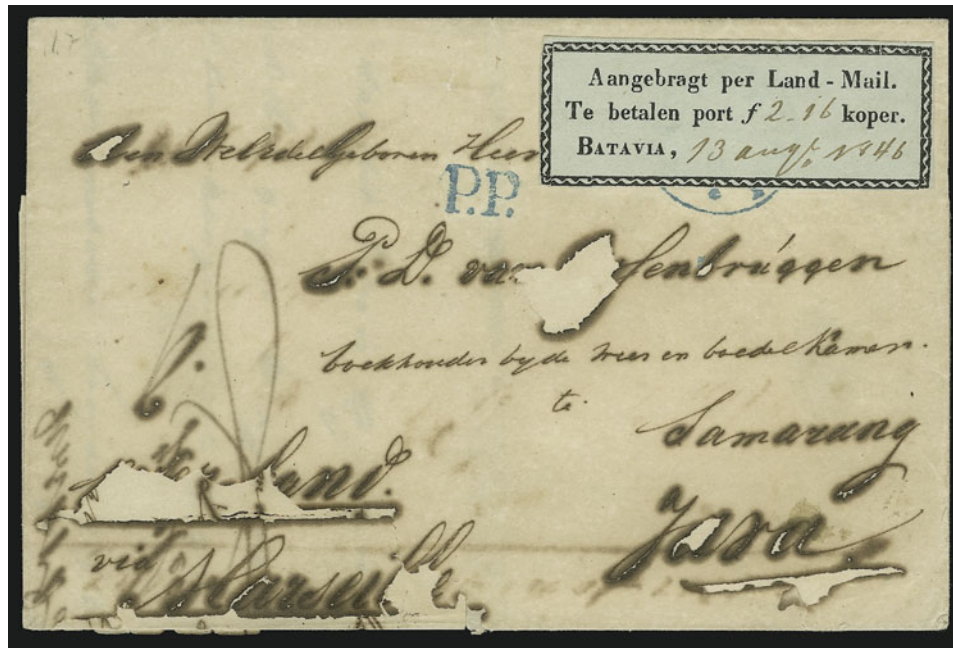 Aangebragt per Land-Mail.
Te betalen port f 2-16 koper.
BATAVIA, 13 augt. 1846
Den Weledelgeboren Heer
P.P.
P. D. van senbrúggen
boekhouder by de wees en boedel Kamer.
te
Samarang
Land.
Java
via
Marseill